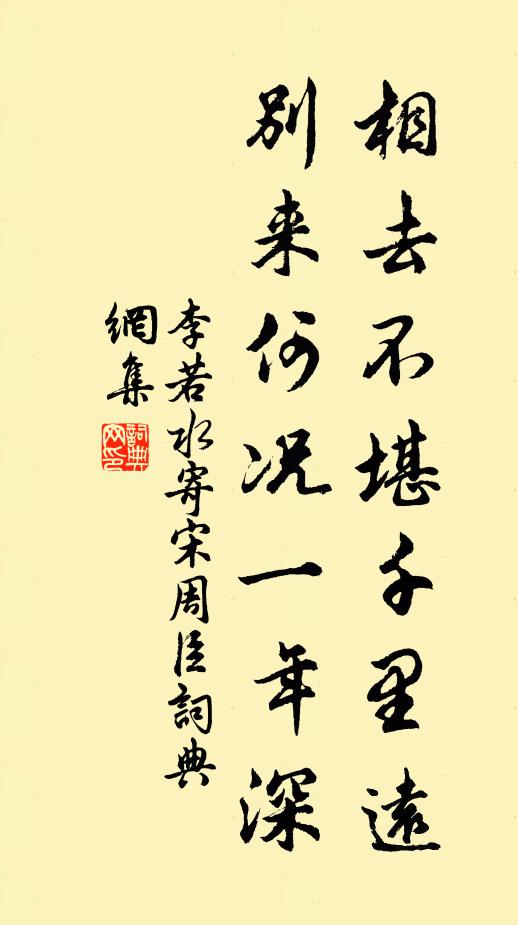 相去不堪千里遠
別来何况一年深
李若水寄宋周臣詞典
網集
詞典